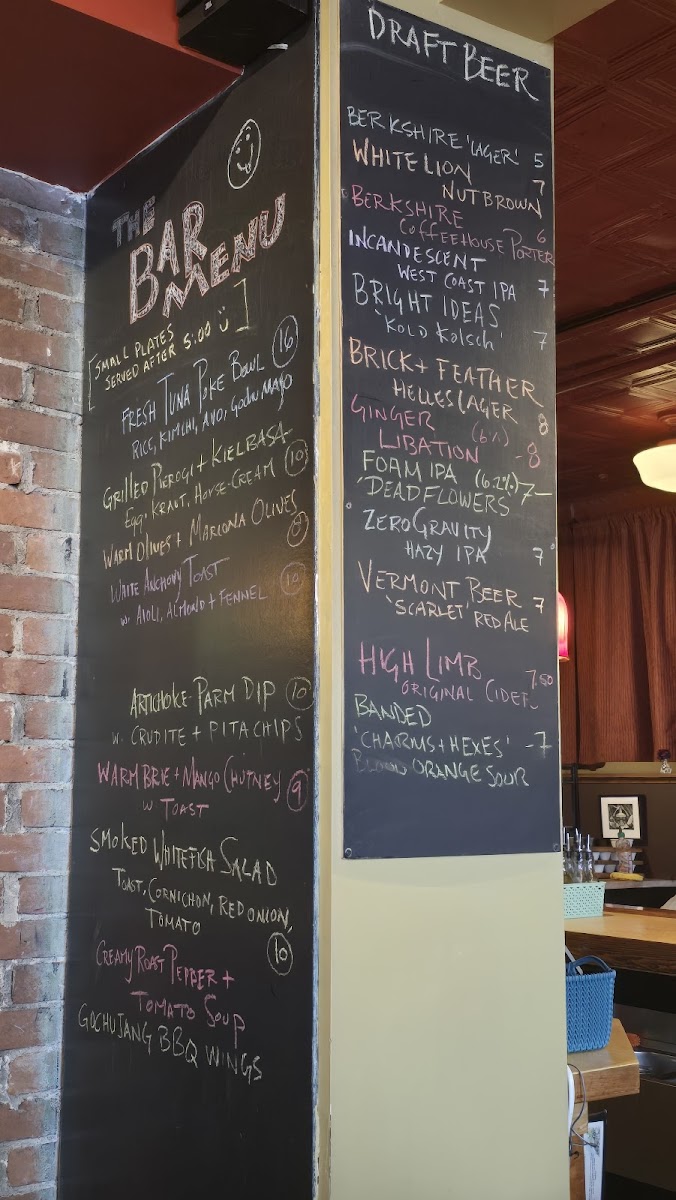 THE
BAR
MENU
[SMALL PLATES
SERVED AFTER 5:00]
FRESH TUNA POKE BOWL 16
RICE, KIMCHI, AVO, GOCHU MAYO
GRILLED PIEROGI + KIELBASA
EGG, KRAUT, HORSE-CREAM 10
WARM OLIVES + MARCONA OLIVES
WHITE ANCHOVY TOAST
w/ AIOLI, ALMOND + FENNEL 10
ARTICHOKE-PARM DIP 10
W. CRUDITE + PITA CHIPS
WARM BRIE + MANGO CHUTNEY 9
W TOAST
SMOKED WHITEFISH SALAD
TOAST, CORNICHON, RED ONION,
TOMATO 10
CREAMY ROAST PEPPER +
TOMATO SOUP
GOCHUJANG BBQ WINGS
DRAFT BEER
BERKSHIRE 'LAGER' 5
WHITE LION 7
NUT BROWN
BERKSHIRE 6
COFFEEHOUSE PORTER
INCANDESCENT
WEST COAST IPA 7
BRIGHT IDEAS
'KOLD KOLSCH 7
BRICK + FEATHER
HELLES LAGER 8
GINGER (6%)
LIBATION - 8
FOAM IPA (6.2%) 7-
'DEADFLOWERS'
ZERO GRAVITY
HAZY IPA 7
VERMONT BEER 7
'SCARLET' RED ALE
HIGH LIMB 7.50
ORIGINAL CIDER
BANDED
'CHARMS + HEXES' - 7
BLOOD ORANGE SOUR